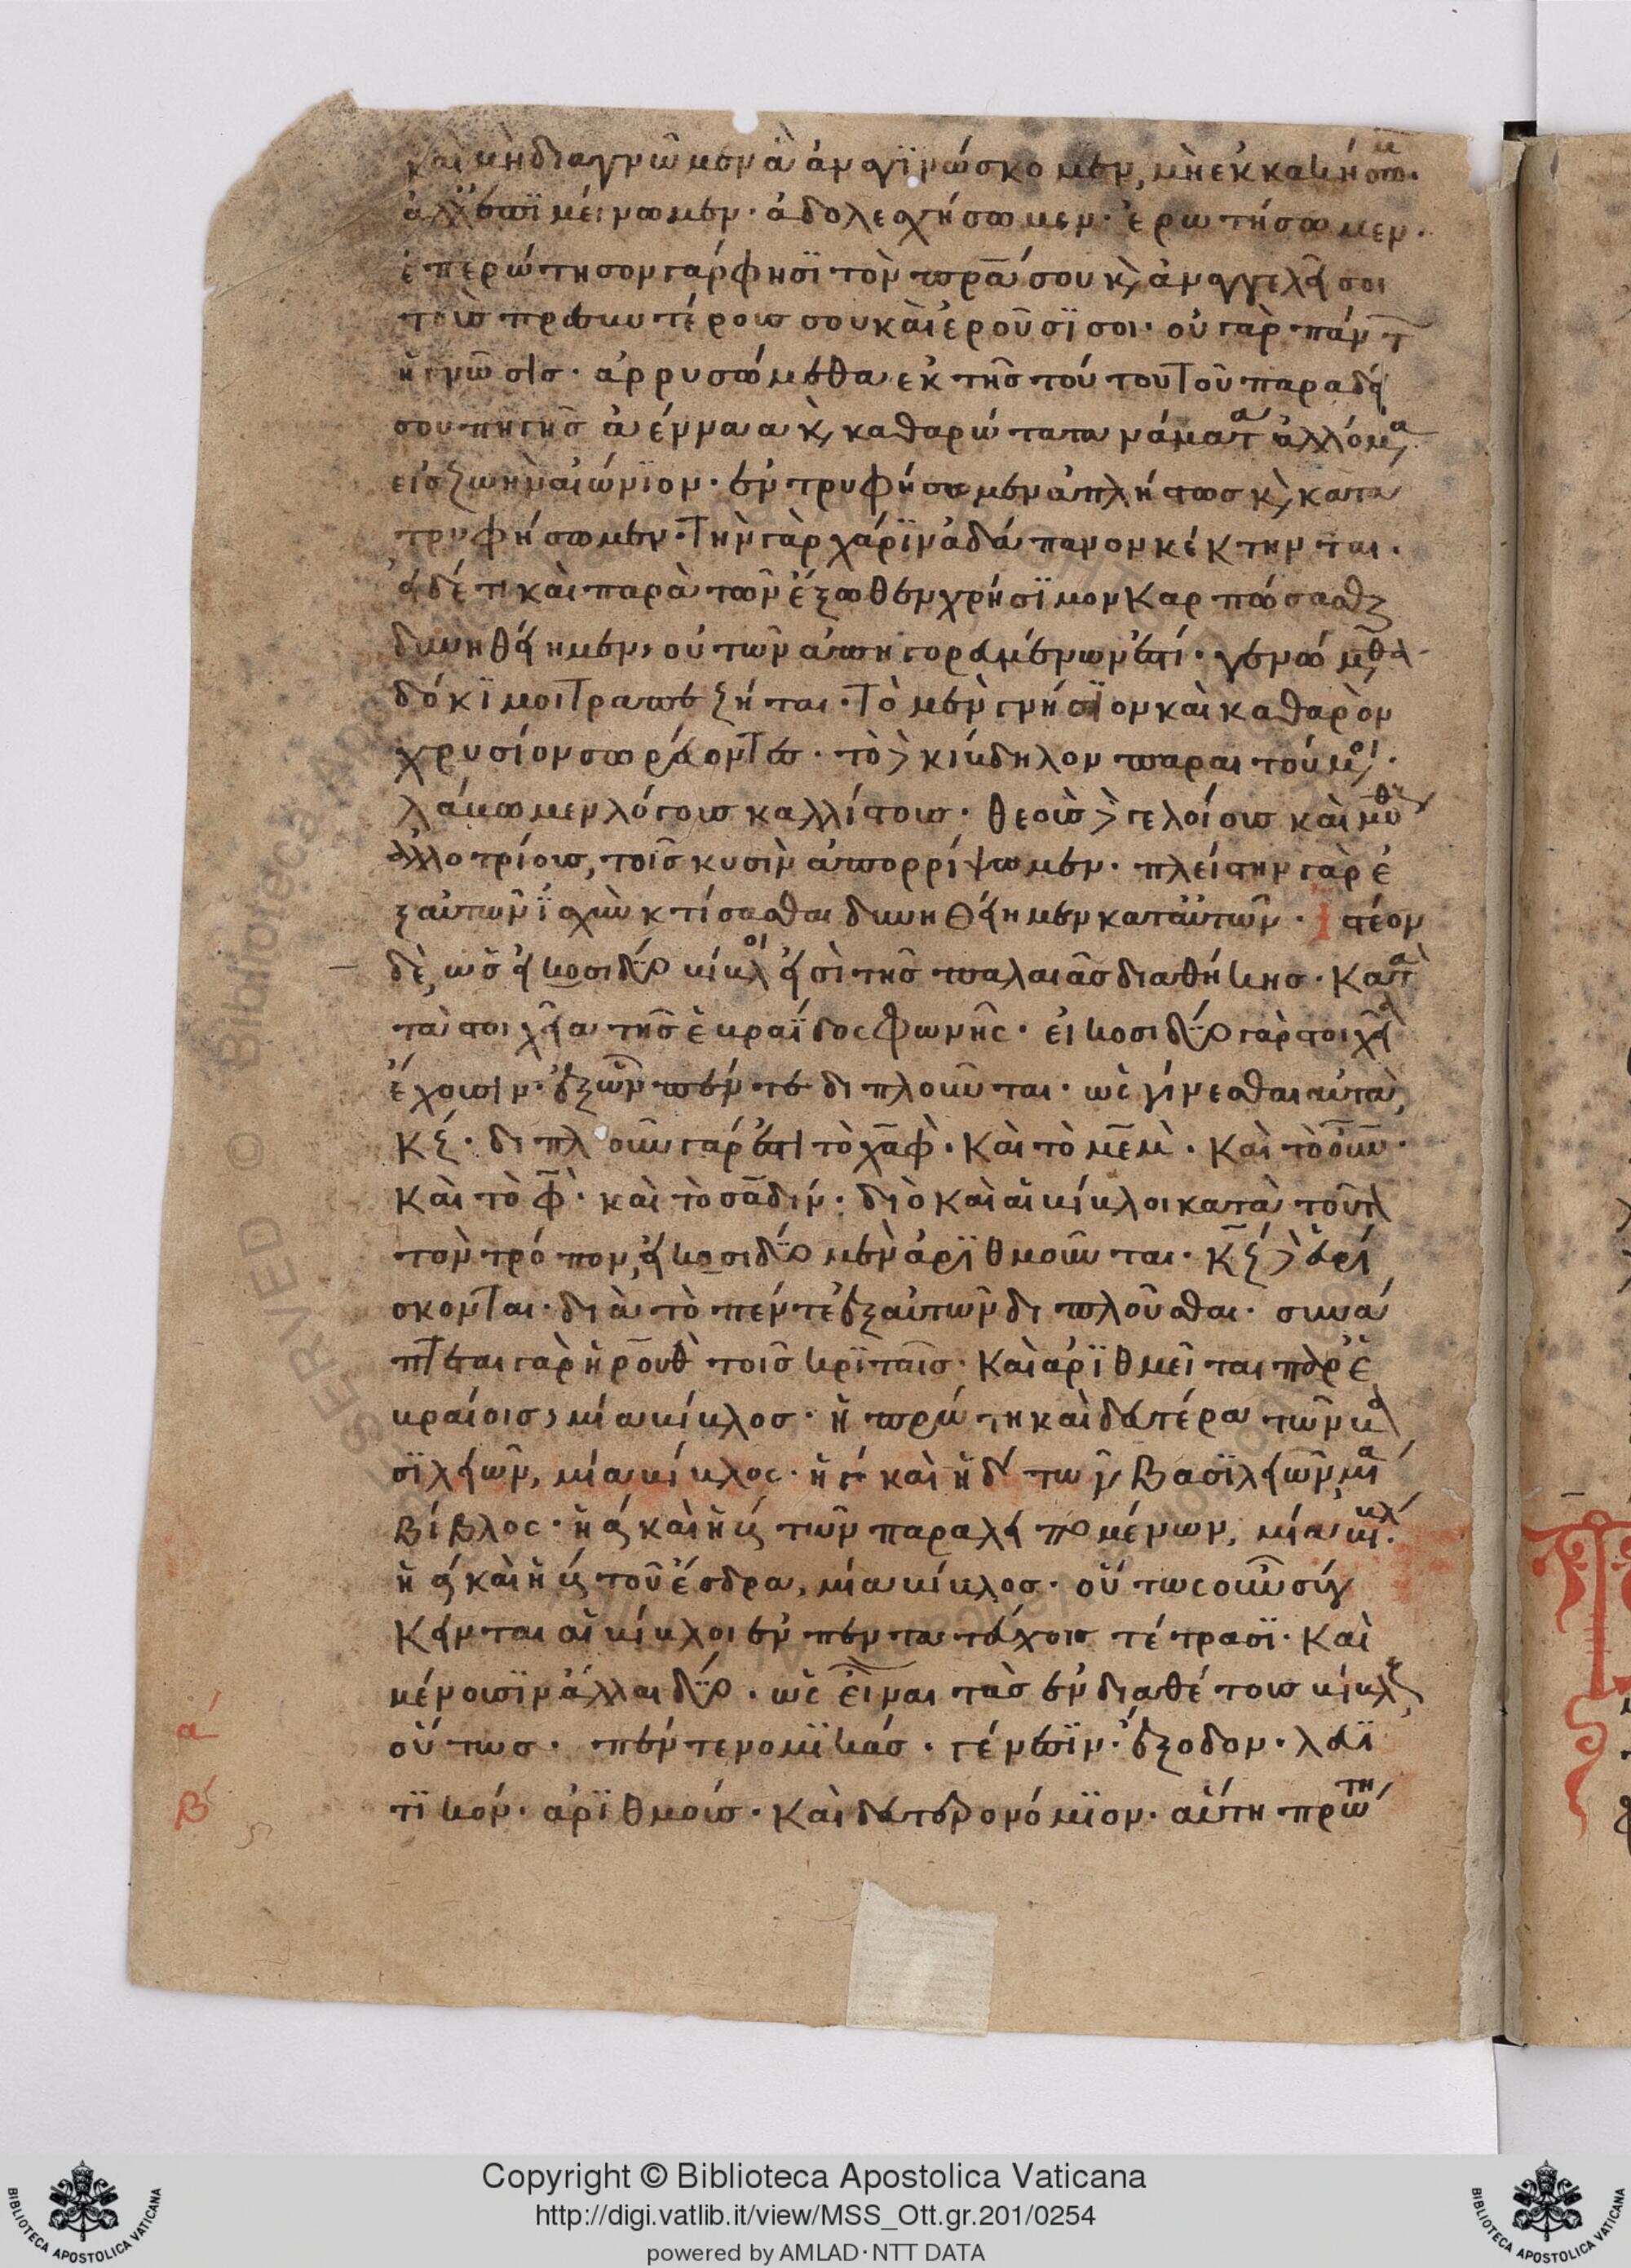 καὶ μὴ διαγνῶμεν ἃ ἀναγϊνώσκομεν, μὴ ἐκκακήσωμ.
ἀλλ' ἐπϊμείνωμεν· ἀδολεσχήσωμεν· ἐρωτήσωμεν·
ἐπερώτησον γάρ φησϊ τὸν πρα σου κ, ἀναγγελεῖ σοι
τοὺς πρεσβυτέρους σου καὶ ἐροῦσϊ σοι· οὐ γὰρ πάντ
ἡ γνῶσις· ἀρρυσώμεθα ἐκ τῆς τούτου τοῦ παραδεί
σου πηγῆς ἀένναα κ, καθαρώτατα νάματα ἁλλόμα
εἰς ζωὴν αἰώνϊον· ἐντρυφήσωμεν ἀπλήστως κ, κατα
τρυφήσωμεν· τὴν γὰρ χάρϊν ἀδάπανον κέκτηνται·
εἰ δέ τι καὶ παρὰ τῶν ἔξωθεν χρήσϊμον καρπώσασθ
δυνηθείημεν, οὐ τῶν ἀπηγορευμένων ἐστί· γενώμθα
δόκϊμοι τραπεζῆται· τὸ μὲν γνήσϊον καὶ καθαρὸν
χρυσίον σωρεύοντες· τὸ δὲ κίβδηλον παραιτούμοι·
λάβωμεν λόγους καλλίστους· θεοὺς δὲ γελοίους καὶ μυθ
ἀλλοτρίους, τοῖς κυσὶν ἀπορρίψωμεν· πλείστην γὰρ ἐ
ξ αὐτῶν ἰσχὺν κτίσασθαι δυνηθείημεν κατ' αὐτῶν· Ἰστέον
δὲ, ὡς εἴκοσι δύο βίβλοι εἰσὶ τῆς παλαιᾶς διαθήκης· κατὰ
τὰ στοιχεῖα τῆς ἑβραΐδος φωνῆς· εἰκοσι δύο γὰρ στοιχεῖα
ἔχουσιν· ἐξ ὧν πέντε διπλοῦνται· ὡς γίνεσθαι αὐτὰ
κζ· διπλοῦν γάρ ἐστι τὸ χὰφ· καὶ τὸ μὲμ· καὶ τὸ νοῦν·
καὶ τὸ φὶ· καὶ τὸ σαδίν· διὸ καὶ αἱ βίβλοι κατὰ τοῦτ
τὸν τρόπον, εἰκοσι δύο μὲν ἀρϊθμοῦνται· κζ δὲ εὑρί
σκονται· διὰ τὸ πέντε ἐξ αὐτῶν διπλοῦσθαι· συνά
πτεται γὰρ ἡ ροὺθ τοῖς κρϊταῖς· καὶ ἀρϊθμεῖται παρ' ἑ
βραίοις, μία βίβλος· ἡ πρώτη καὶ δευτέρα τῶν βα
σϊλειῶν, μία βίβλος· ἡ γ καὶ ἡ δ τῶν βασϊλειῶν μία
βίβλος· ἡ α καὶ ἡ β τῶν παραλειπομένων, μία βιβλ.
ἡ α καὶ ἡ β τοῦ ἔσδρα, μία βίβλος· οὕτως οὖν σύγ
κεινται αἱ βίβλοι ἐν πεντατεύχοις τέτρασϊ· καὶ
μένουσϊν ἄλλαι δύο· ὡς εἶναι τὰς ἐνδιαθέτους βίβλους
οὕτως· πέντε νομϊκάς· γένεσϊν· ἔξοδον· λευϊ
τϊκόν· ἀρϊθμούς· καὶ δευτερονόμϊον· αὕτη πρώτη
α
β